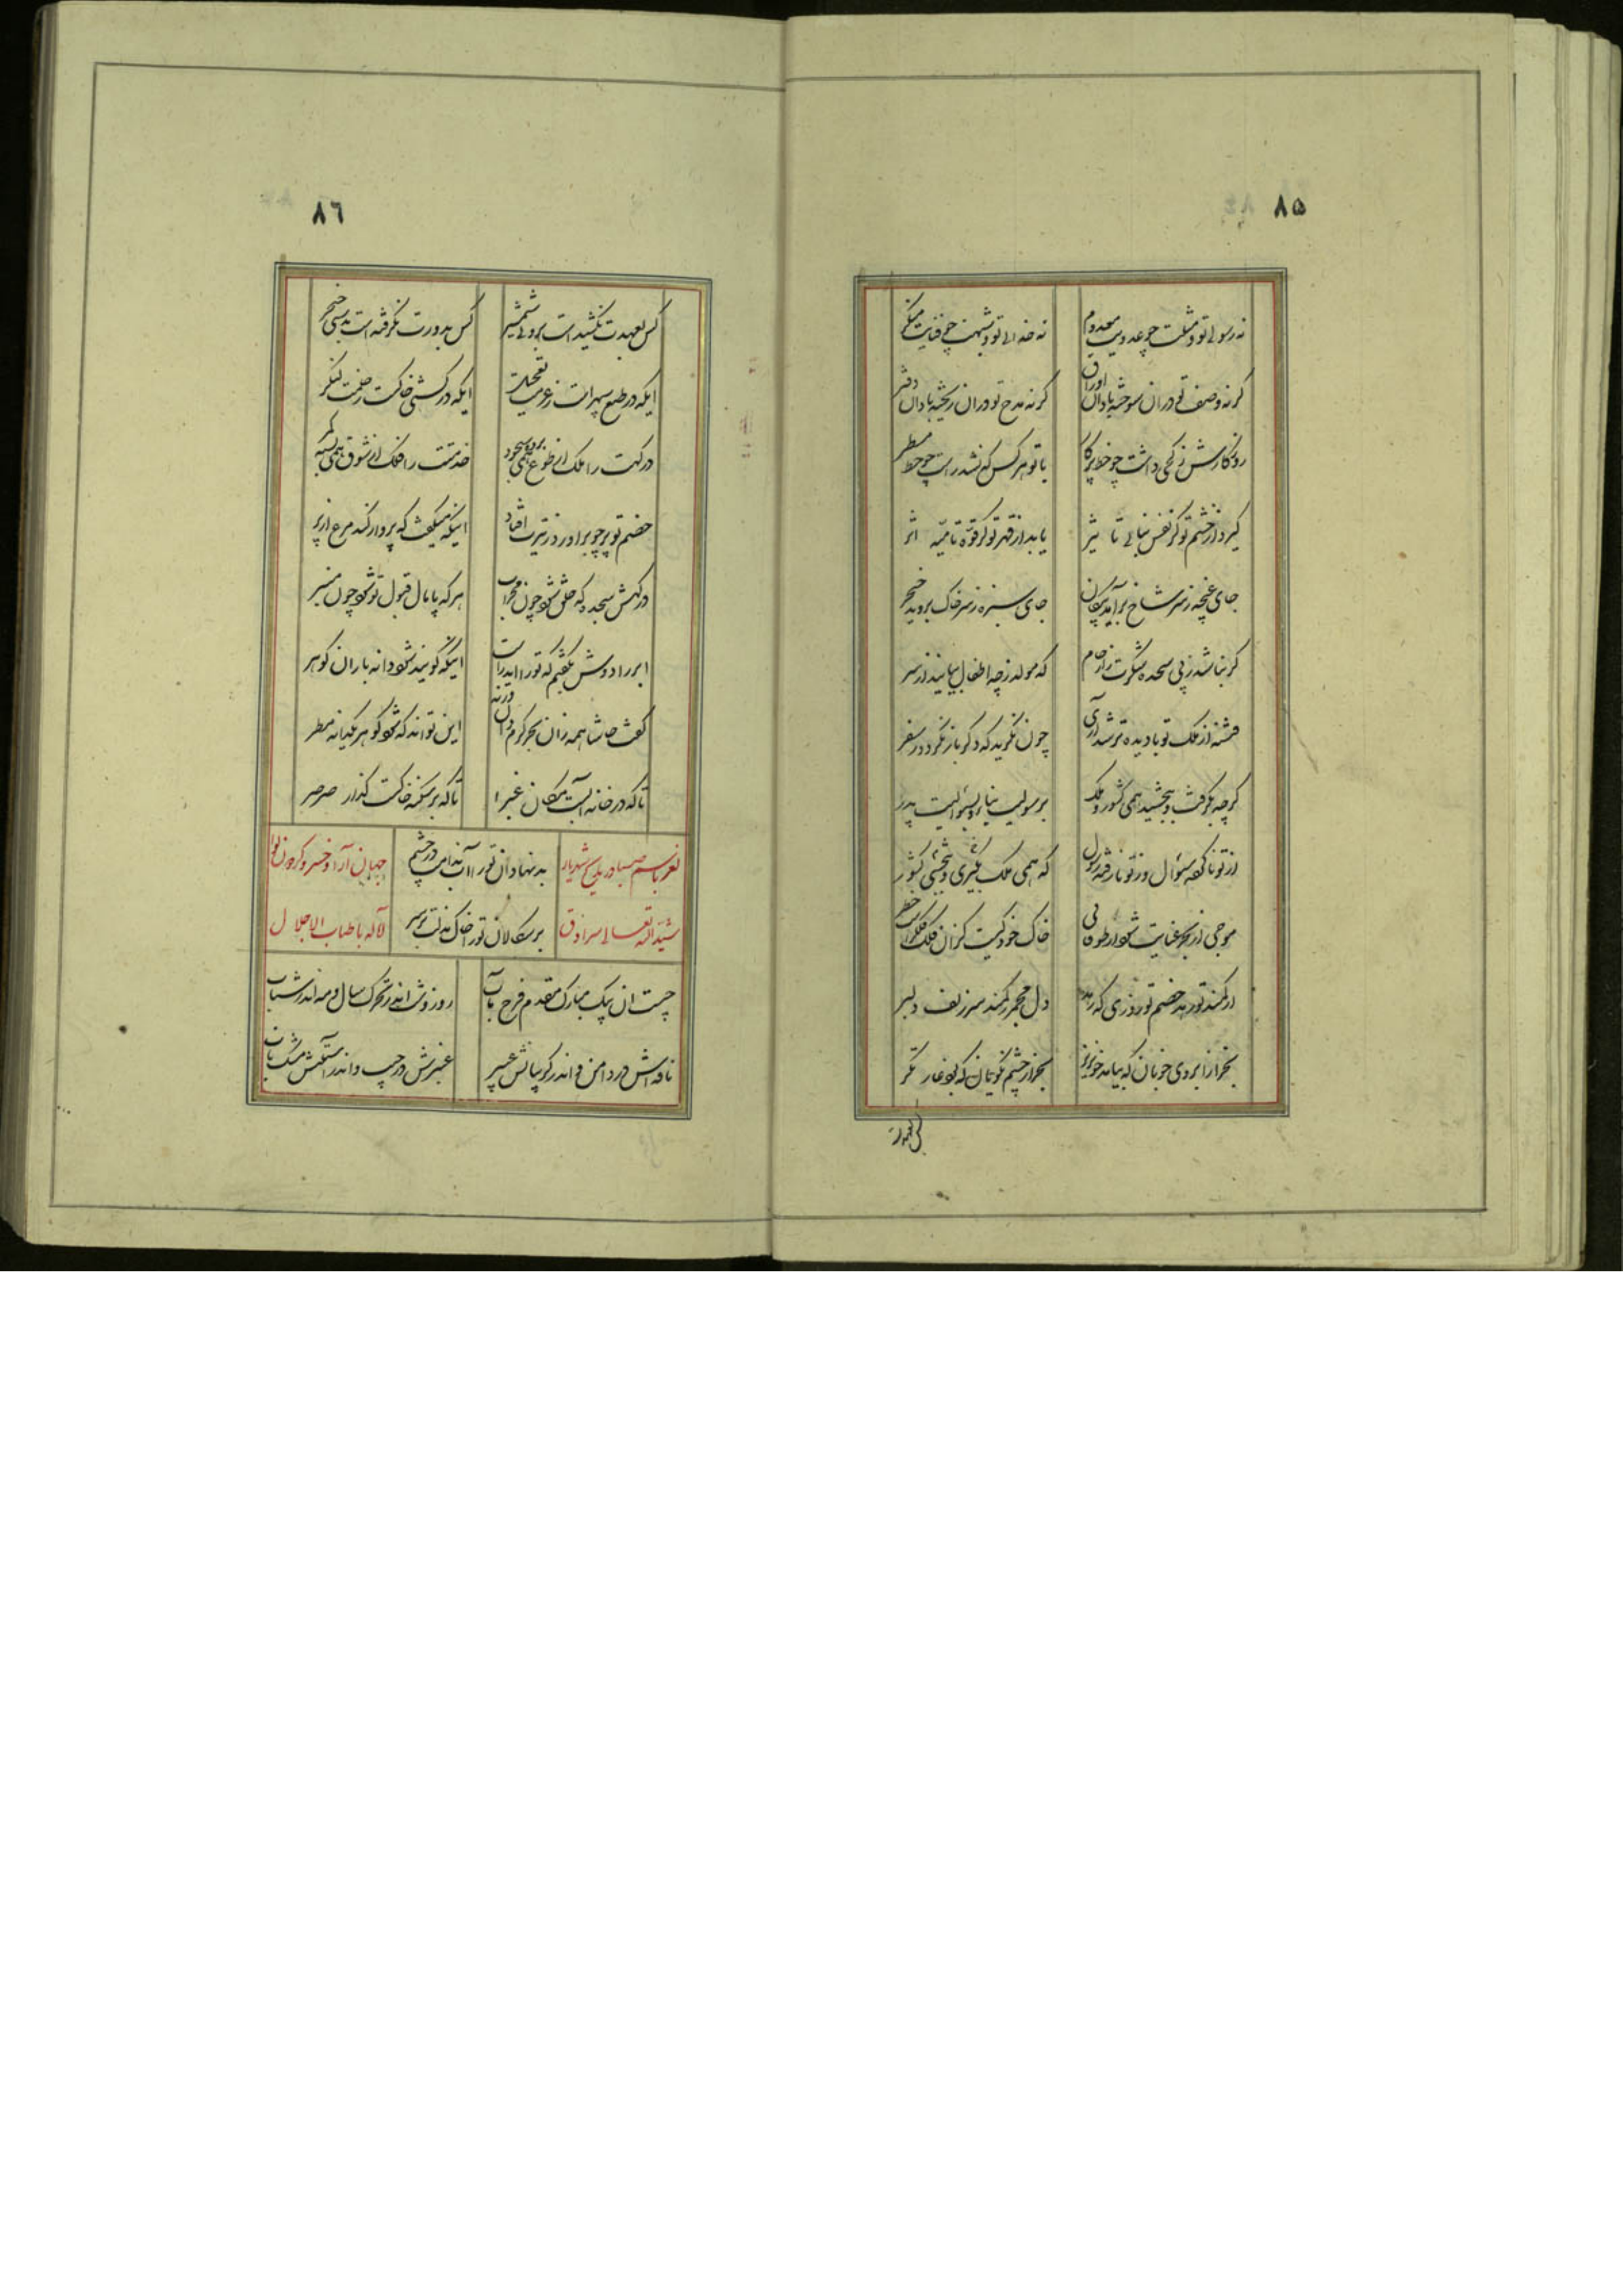 ۸۵
نه رسولی تو و مثلت چو عدویت معدوم نه خدائی تو و شبهت چو فنایت منکر
گر نه وصف تو در آن سوخته باد آن اوراق گر نه مدح تو در آن ریخته باد آن دفتر
روزگارش ز کجی داشت چو خط پرگار با تو هر کس که نشد راست چو خط مسطر
گیرد از خشم تو گر نفس نباتی تاثیر یابد از قهر تو گر قوّهٔ نامیّه اثر
جای غنچه ز سر شاخ برآید پیکان جای سبزه ز سر خاک بروید خنجر
گر نباشد ز پی سجدهٔ شکرت ز ارحام که مولد ز چه اطفال بیایند ز سر
فتنه از ملک تو با دیدهٔ تر شد آری چون نگرید که دگر باز نگردد ز سفر
گرچه بگرفت و ببخشید همی کشور و ملک پدر
از تو ناگفته سئوال و ز تو نارفته رسول که همی ملک بگیری و ببخشی کشور
موجی از بحر عنایت شود ار طوفانی خاک خود کیست کز آن فلک فلک راست خطر
از کمند تو رهد خصم تو روزی که رهد دل مجمر ز کمند سر زلف دلبر
بجز از ابروی خوبان که بیامد خونریز بجز از چشم نکویان که بود غارتگر
کس بعهدت
۸۶
کس بعهدت نکشیدست برویی شمشیر کس بدورت نگرفته است بدستی خنجر
ایکه در طبع سپهرات ز عزمت تعجیل ایکه در کشتی خاکست ز حلمت لنگر
درگهت را ملک از طوع همی برده سجود خدمتت را فلک از شوق همی بسته کمر
خصم تو پر چو برآورد ز تیرت افتاد اینکه میگفت که پرواز کند مرغ از پر
درگهش سجده گه خلق شود چون محراب هر که پامال قبول تو شود چون منبر
ابر را دوش بگفتم که تو را اندر است اینکه گویند شود دانه باران گوهر
گفت حاشا همه زان بحر کرم دان ورنه این تواند که شود گوهر یکدانه مطر
تا که در خانه آبست مکان غبرا تا که بر سکنهٔ خاکست گذار صرصر
بدنهادان تو را آب ندامت در چشم
بدسگالان تو را خاک مذلت بر سر
نغز باسم صبا در مدح شهریار جهان آرا و خسرو گردون لوا
شیّد الله تعالی سرادق لآله باطناب الاجلال
چیست آن پیک مبارک مقدم فرخ مآب روز و شب اندر تحرک سال و مه اندر شتاب
نافه اش در دامن و اندر گریبانش عبیر عنبرش در جیب و اندر آستینش مشک ناب